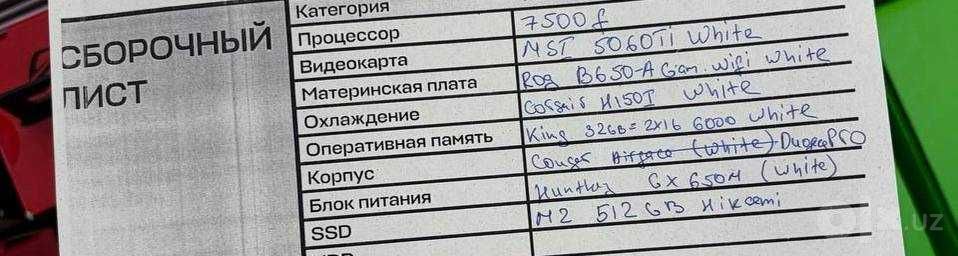 СБОРОЧНЫЙ
ЛИСТ
Категория
Процессор 7500f
Видеокарта MSI 5060Ti White
Материнская плата Rog B650-A Gam. Wifi White
Охлаждение Corsair H150I White
Оперативная память King 32GB=2x16 6000 White
Корпус Couger Airface (White) DuofacePRO
Блок питания GX 650M (White)
SSD M2 512GB Hiksemi
.uz